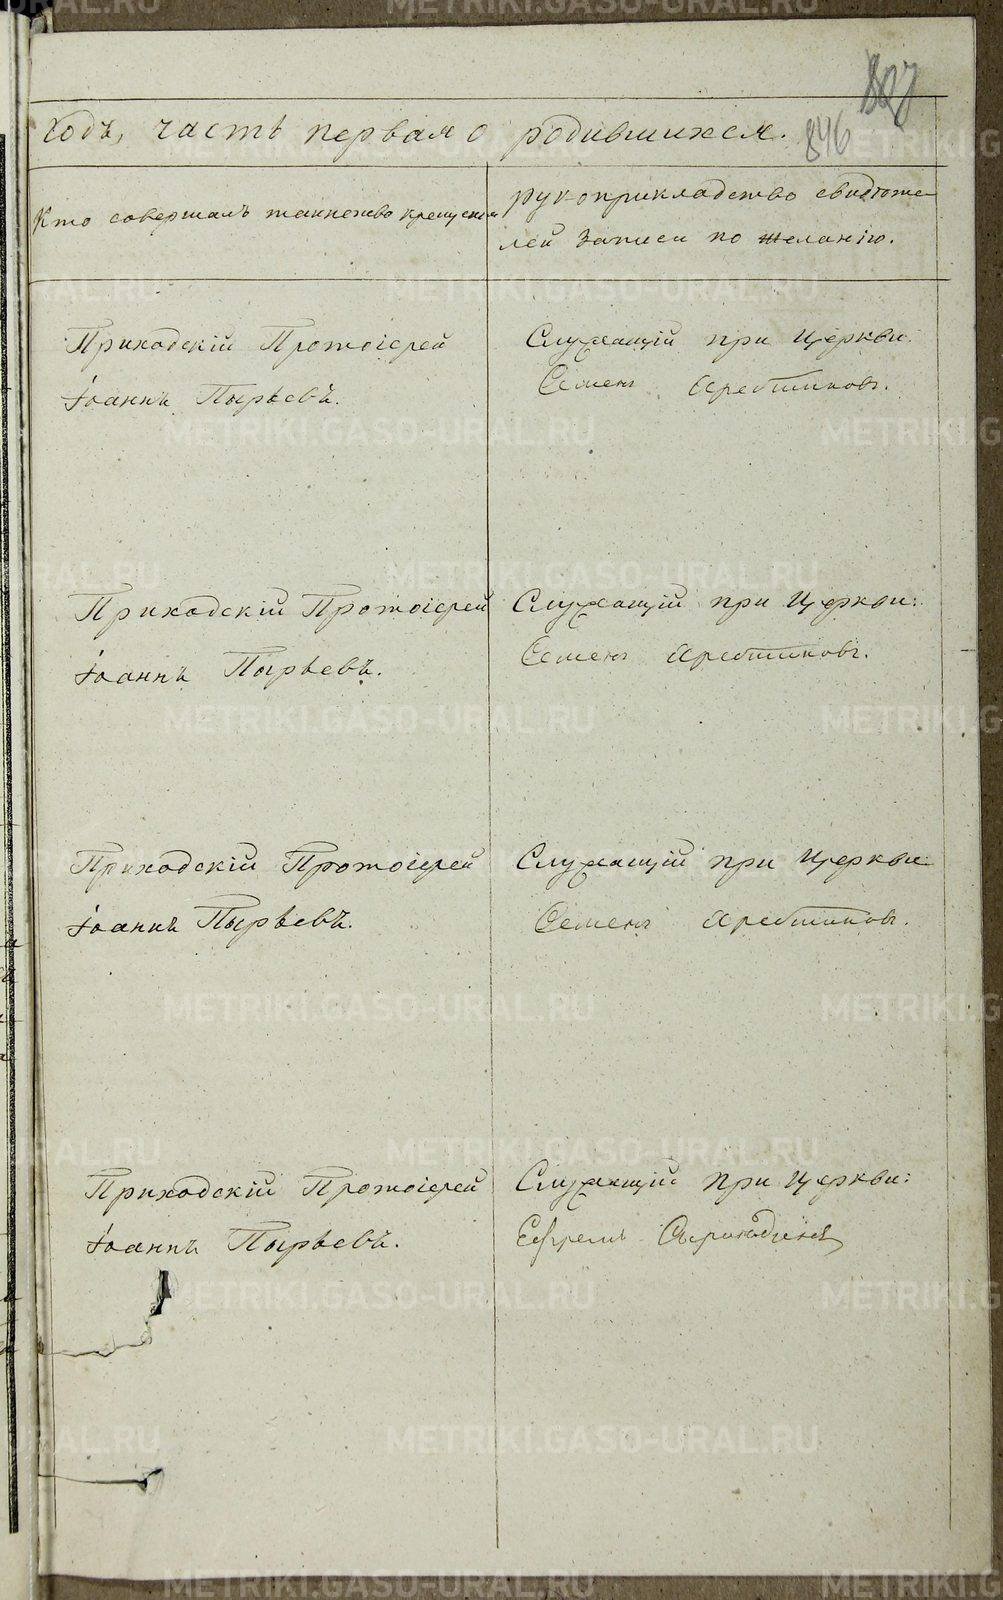 годъ, часть первая о родившихся.
846
Кто совершалъ таинство крещенія
рукоприкладство свидѣте-
лей записи по желанію.
Приходскій Протоіерей
Іоаннъ Пырьевъ.
Служащій при Церкви:
Семенъ
Приходскій Протоіерей
Іоаннъ Пырьевъ.
Служащій при Церкви:
Семенъ
Приходскій Протоіерей
Іоаннъ Пырьевъ.
Служащій при Церкви
Семенъ
Приходскій Протоіерей
Іоаннъ Пырьевъ.
Служащій при Церкви:
Ефремъ
METRIKI.GASO-URAL.RU